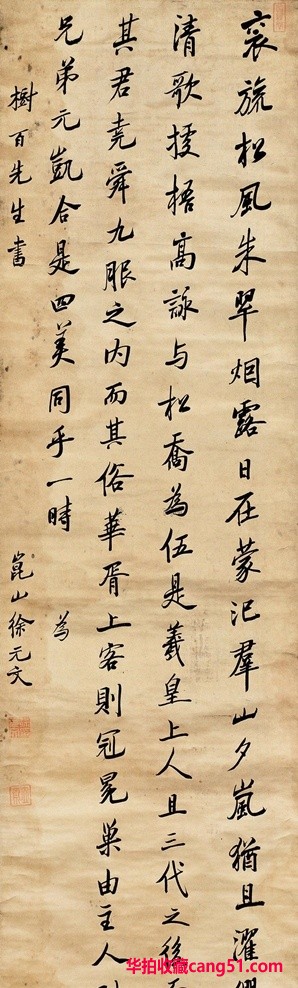 袞旒松風朱翠烟露日在蒙汜羣山夕嵐猶且濯
清歌據梧高詠與松喬為伍是羲皇上人且三代之後
其君堯舜九服之內而其俗華胥上客則冠冕巢由主人
兄弟元凱合是四美同乎一時 為
樹百先生書 崑山徐元文
华拍收藏cang51.com